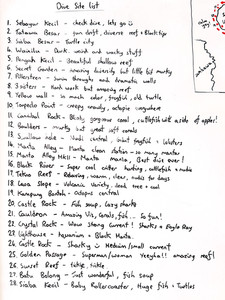 Dive Site list
1. Sebayur Kecil - check dive, lets go :)
2. Tatawa Besar - fun drift, diverse reef + Blacktip
3. Siaba Besar - Turtle city
4. Wainilu - Dark, weird and wacky stuff
5. Pengah Kecil - Beautiful shallow reef
6. Secret Garden - amazing diversity but little bit murky
7. Pillarsteen - Swim throughs and dramatic walls
8. 3 sisters - Hunk work but amazing
9. Yellow wall - so much color, frogfish, old turtle
10. Torpedo Point - creepy crawly, octopus everywhere
11. Cannibal Rock - Misty, gorgeous coral, cuttlefish with a side of upper!
12. Boulders - Murky but great soft corals
13. Swallow hole - Nudi central, giant frogfish, lobsters
14. Manta Alley - Manta clean station - so many mantas
15. Manta Alley Mk11 - Manta mania, Best dive ever!
16. Black River - Super cool critter hunting, cuttlefish + nudis
17. Tekno Reef - Relaxing, warm, clear, nudis for days
18. Lava Slope - Volcanic Variety, snek tree + cool
19. Kampung Bontoh - octopus central
20. Castle Rock - Fish soup, Lazy sharks
21. Cauldron - Amazing Vis, Corals, fish... So fun!
22. Crystal Rock - Wow Strong Current! Sharks + Eagle Ray
23. Lighthouse - Aquarium + Black Manta
24. Castle Rock - Sharky :) Medium/small current
25. Golden Passage - Superman/woman Yeeyha!! amazing reef!
26. Sunset Reef - tickle, tickle
27. Batu Bolong - Just wonderful, fish soup
28. Siaba Kecil - Baby Rollercoaster, Huge fish + Turtles